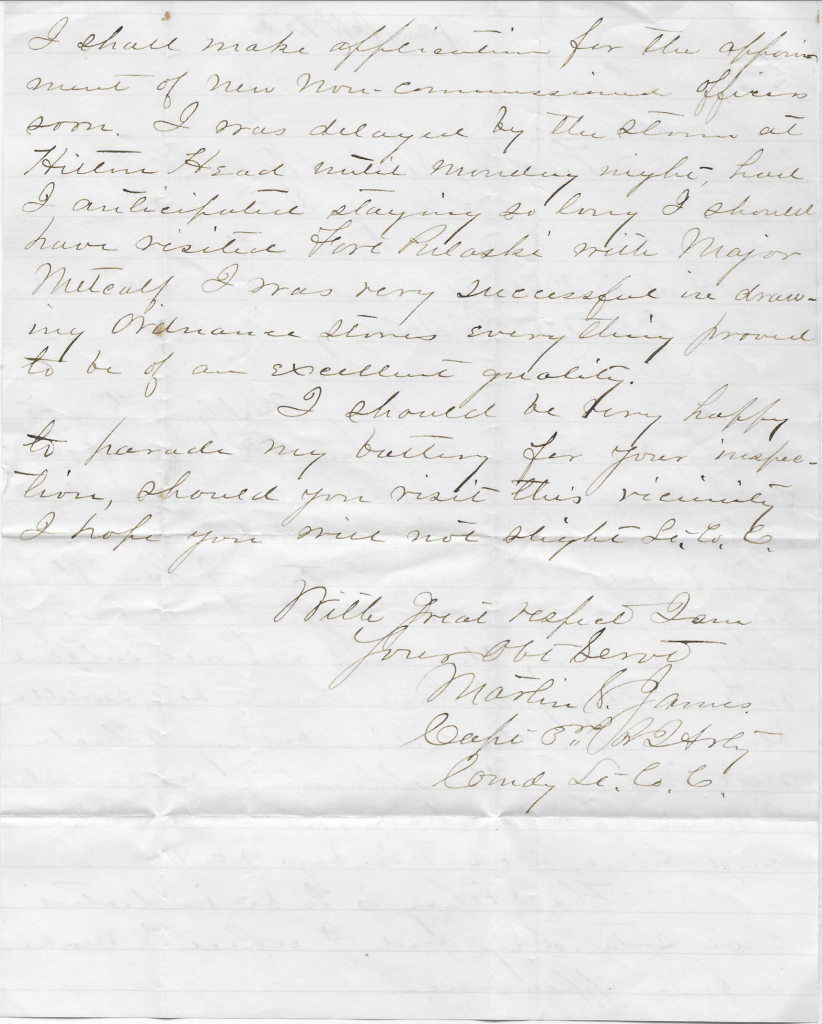 I shall make application for the appoint
ment of new non-commissioned officers
soon. I was delayed by the storm at
Hilton Head until Monday night, had
I anticipated staying so long I should
have visited Fort Pulaski with Major
Metcalf. I was very successful in draw-
ing Ordnance stores everything proved
to be of an excellent quality.
I should be very happy
to parade my battery for your inspec-
tion, should you visit this vicinity
I hope you will not slight Lt. Co. C.
With great respect I am
Your Obt Servt
Martin S. James.
Capt 3rd R I Arty
Comdg Lt. Co. C.